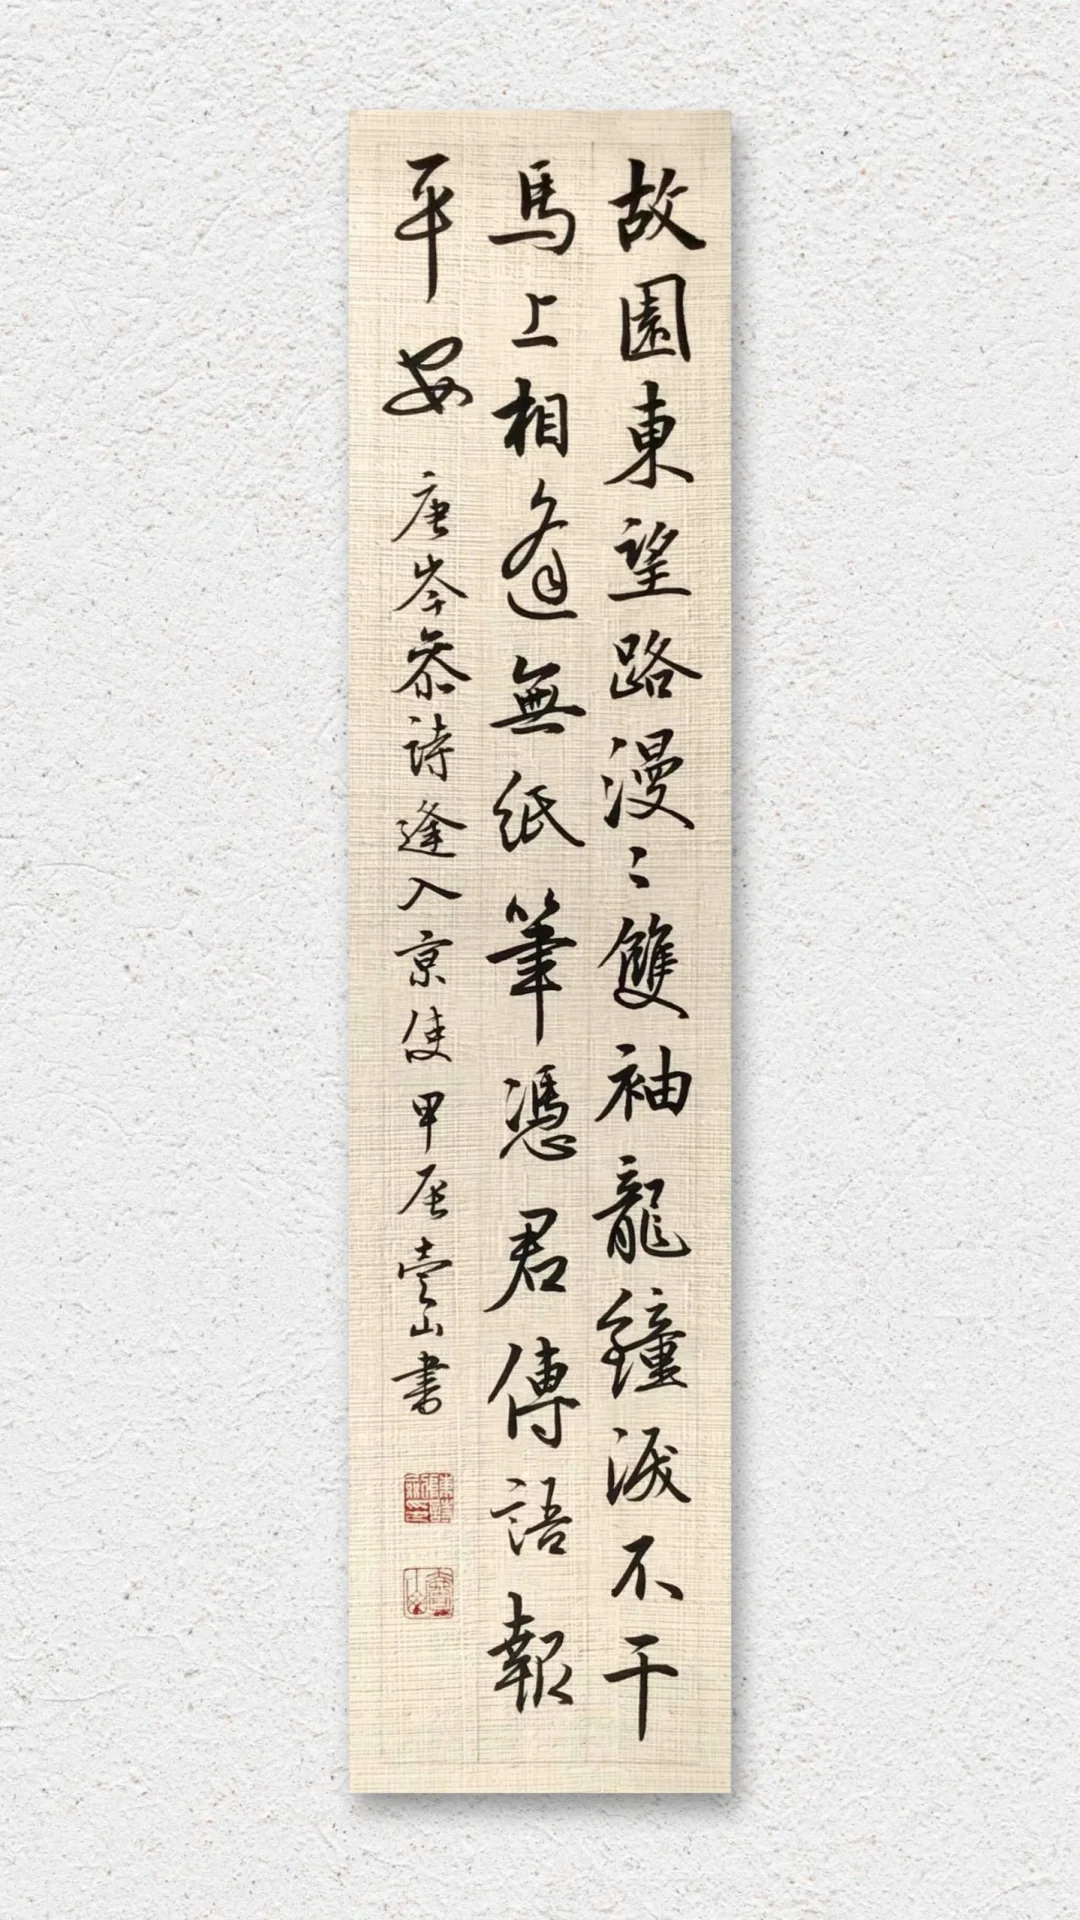 故園東望路漫〻雙袖龍鐘淚不干
馬上相逢無紙筆憑君傳語報
平安
唐岑參詩逢入京使甲辰壹山書